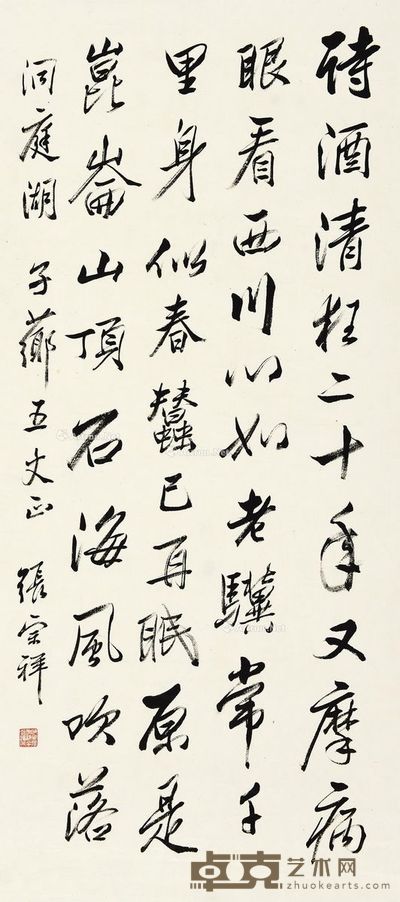 诗酒清狂二十年又摩病
眼看西川心如老骥常千
里身似春蠶已再眠原是
崑崙山頂石海風吹落
洞庭湖 子薌五丈正 張宗祥
卓克艺术网
zhuokearts.com